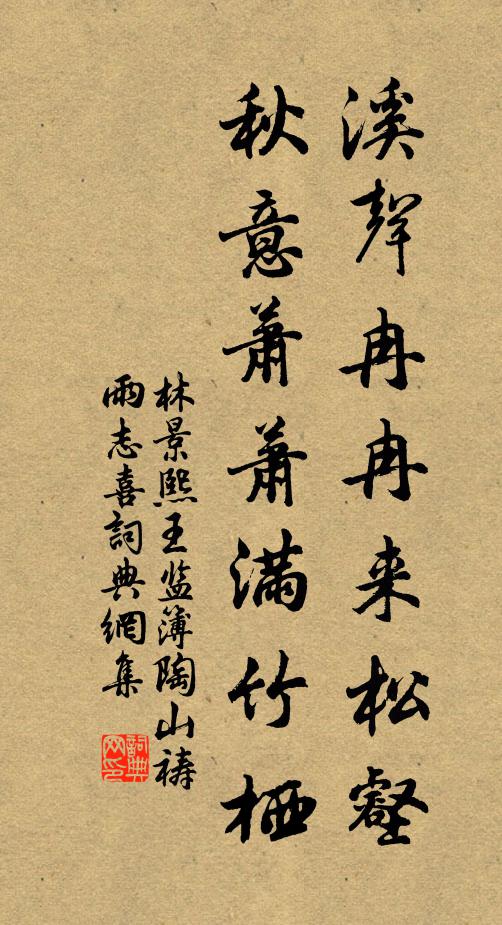 溪聲冉冉来松壑
秋意蕭蕭滿竹栖
林景熙王监簿陶山祷
雨志喜詞典網集
詞典網印